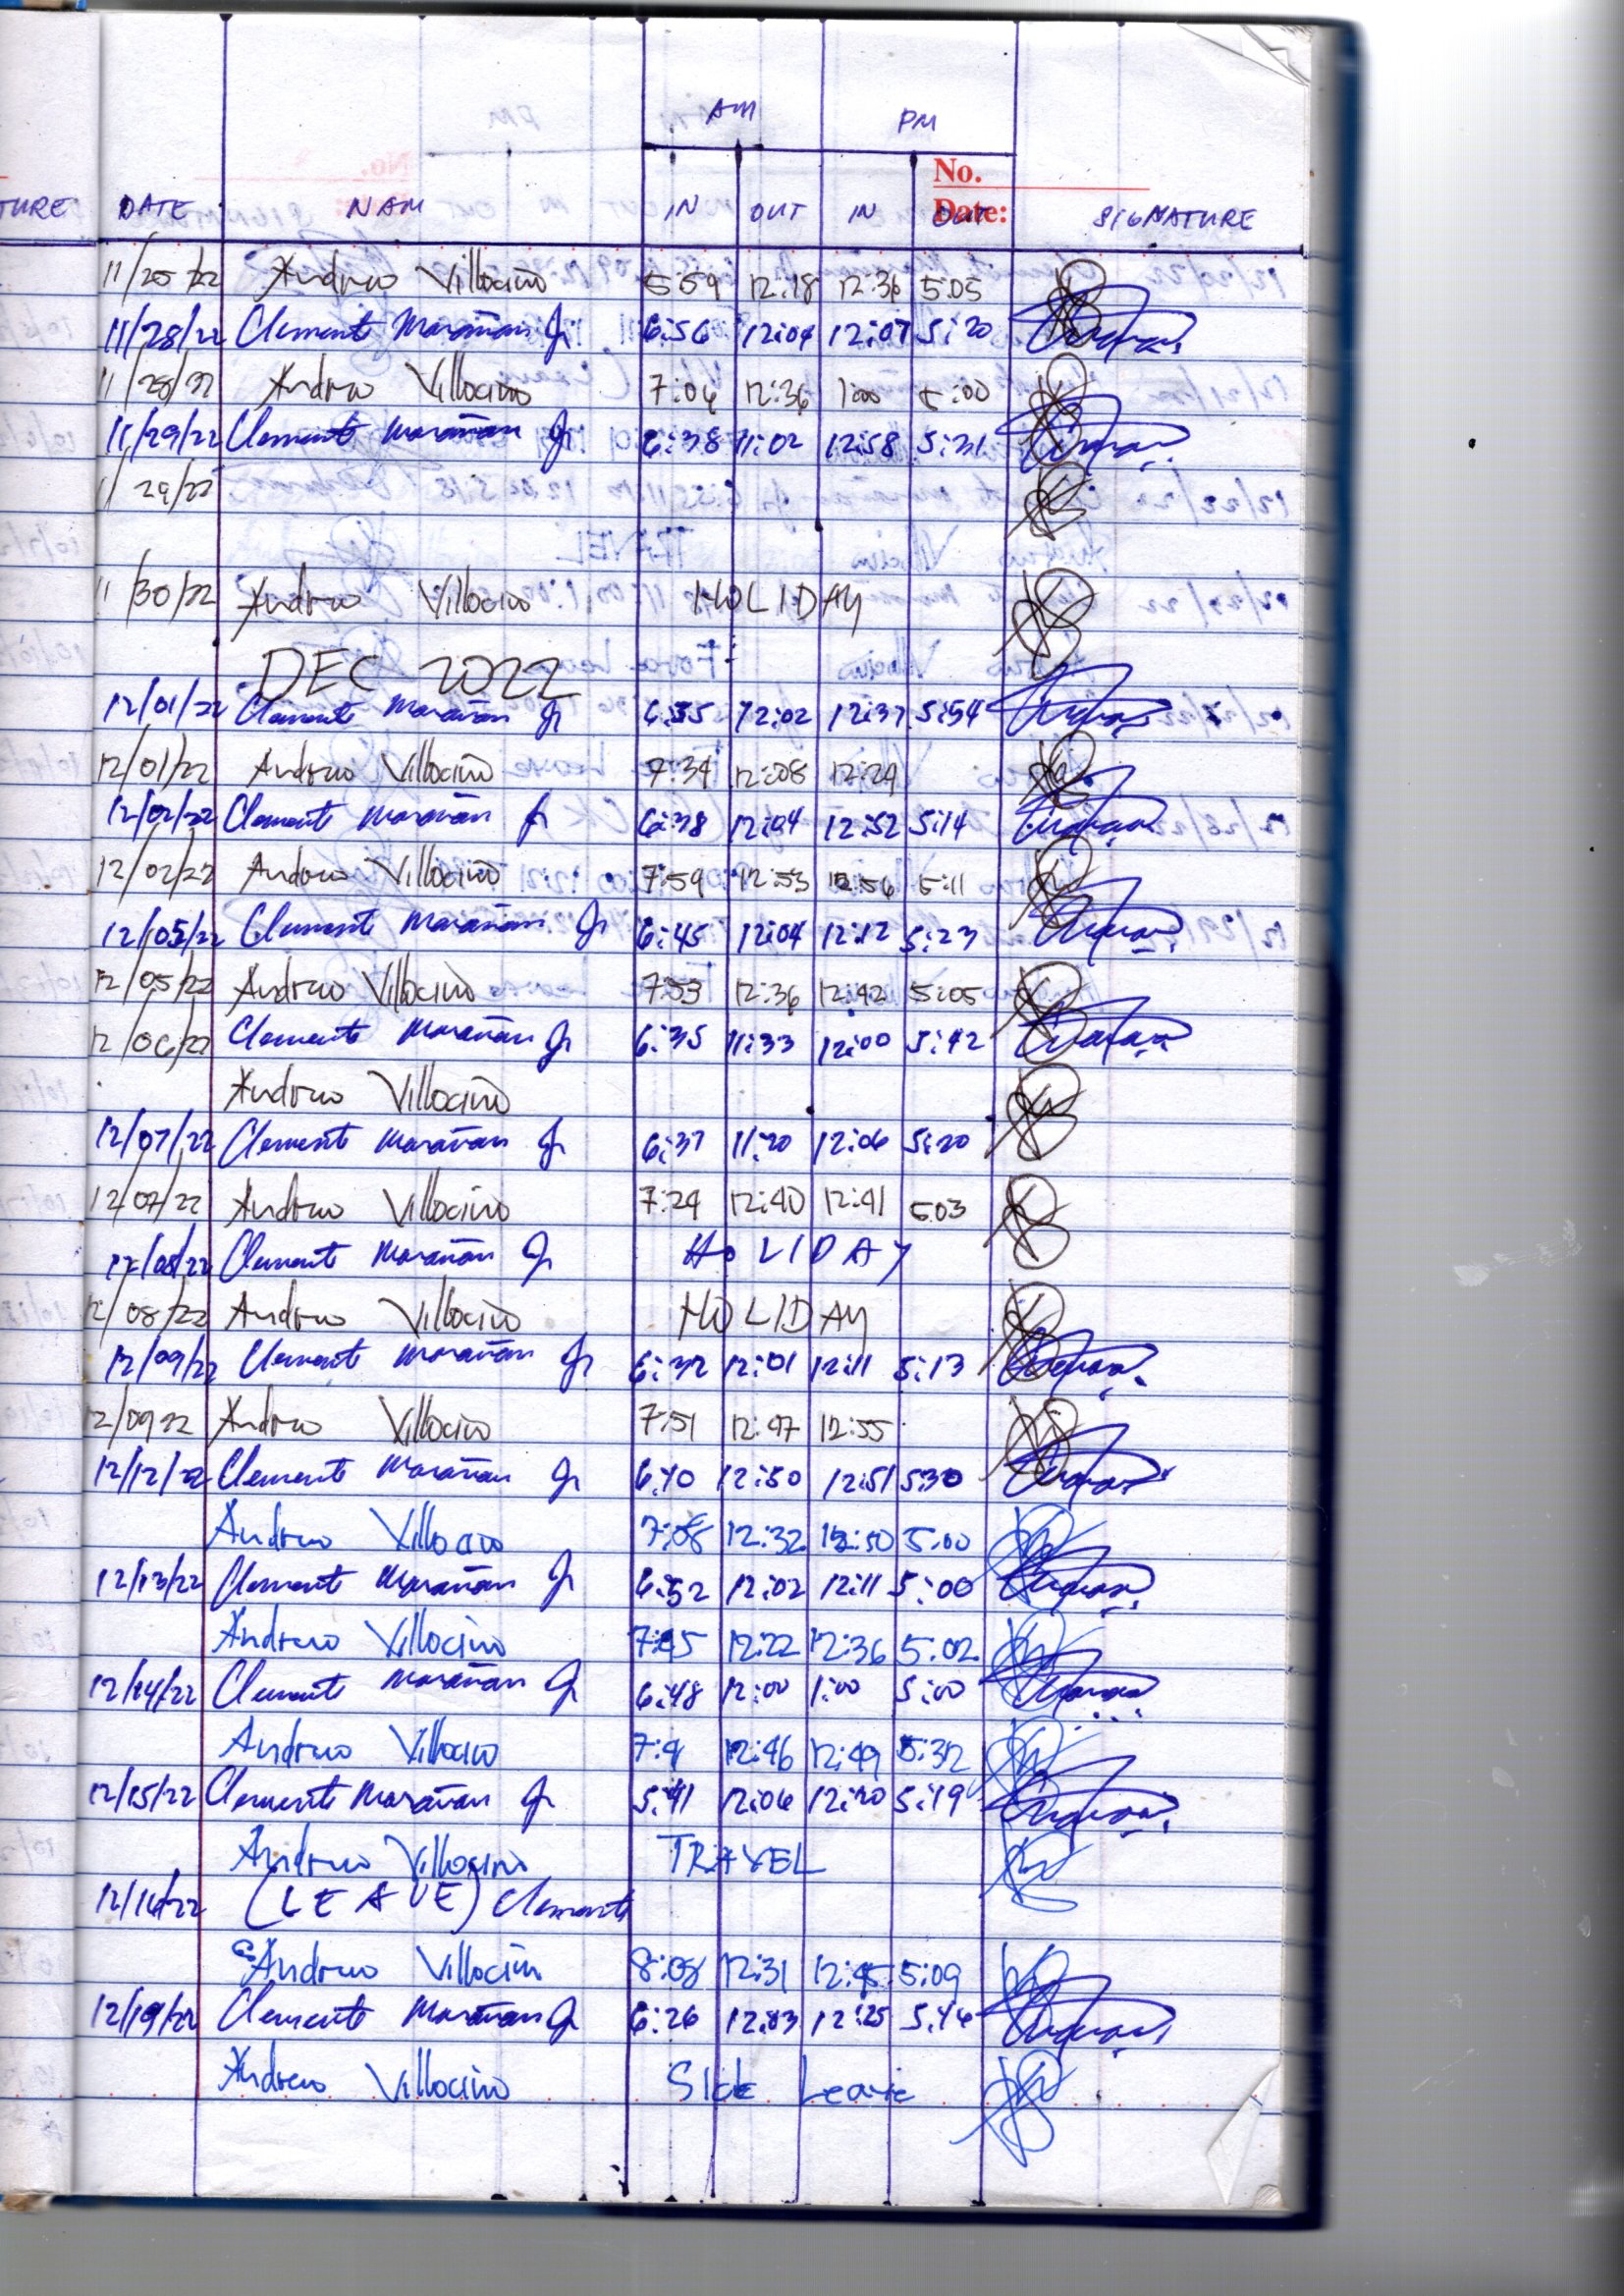 AM PM
No.
Date:
TURE DATE NAM IN OUT IN OUT SIGNATURE
11/25/22 Andrew Villocino 6:59 12:18 12:36 5:05
11/28/22 Clemente Marañan Jr 6:56 12:04 12:07 5:20
11/28/22 Andrew Villocino 7:04 12:36 1:00 5:00
11/29/22 Clemente Marañan Jr 6:38 11:02 12:58 5:31
11/29/22
11/30/22 Andrew Villocino HOLIDAY
DEC 2022
12/01/22 Clemente Marañan Jr 6:55 12:02 12:37 5:54
12/01/22 Andrew Villocino 7:34 12:08 12:29
12/02/22 Clemente Marañan Jr 6:38 12:04 12:52 5:14
12/02/22 Andrew Villocino 7:59 12:53 12:56 5:11
12/05/22 Clemente Marañan Jr 6:45 12:04 12:12 5:23
12/05/22 Andrew Villocino 7:53 12:36 12:42 5:05
12/06/22 Clemente Marañan Jr 6:35 11:33 12:00 5:42
Andrew Villocino
12/07/22 Clemente Marañan Jr 6:37 11:20 12:06 5:20
12/07/22 Andrew Villocino 7:24 12:40 12:41 5:03
12/08/22 Clemente Marañan Jr HOLIDAY
12/08/22 Andrew Villocino HOLIDAY
12/09/22 Clemente Marañan Jr 6:32 12:01 12:11 5:13
12/09 22 Andrew Villocino 7:51 12:47 12:55
12/12/22 Clemente Marañan Jr 6:10 12:50 12:51 5:30
Andrew Villocino 7:08 12:32 12:50 5:00
12/13/22 Clemente Marañan Jr 6:52 12:02 12:11 5:00
Andrew Villocino 7:45 12:22 12:36 5:02
12/14/22 Clemente Marañan Jr 6:48 12:00 1:00 5:00
Andrew Villocino 12:46 12:49 5:32
12/15/22 Clemente Marañan Jr 5:41 12:06 12:20 5:19
Andrew Villocino TRAVEL
12/16/22 (LEAVE) Clemente
Andrew Villocino 8:08 12:31 12:45 5:09
12/19/22 Clemente Marañan Jr 6:26 12:03 12:25 5:46
Andrew Villocino Sick Leave